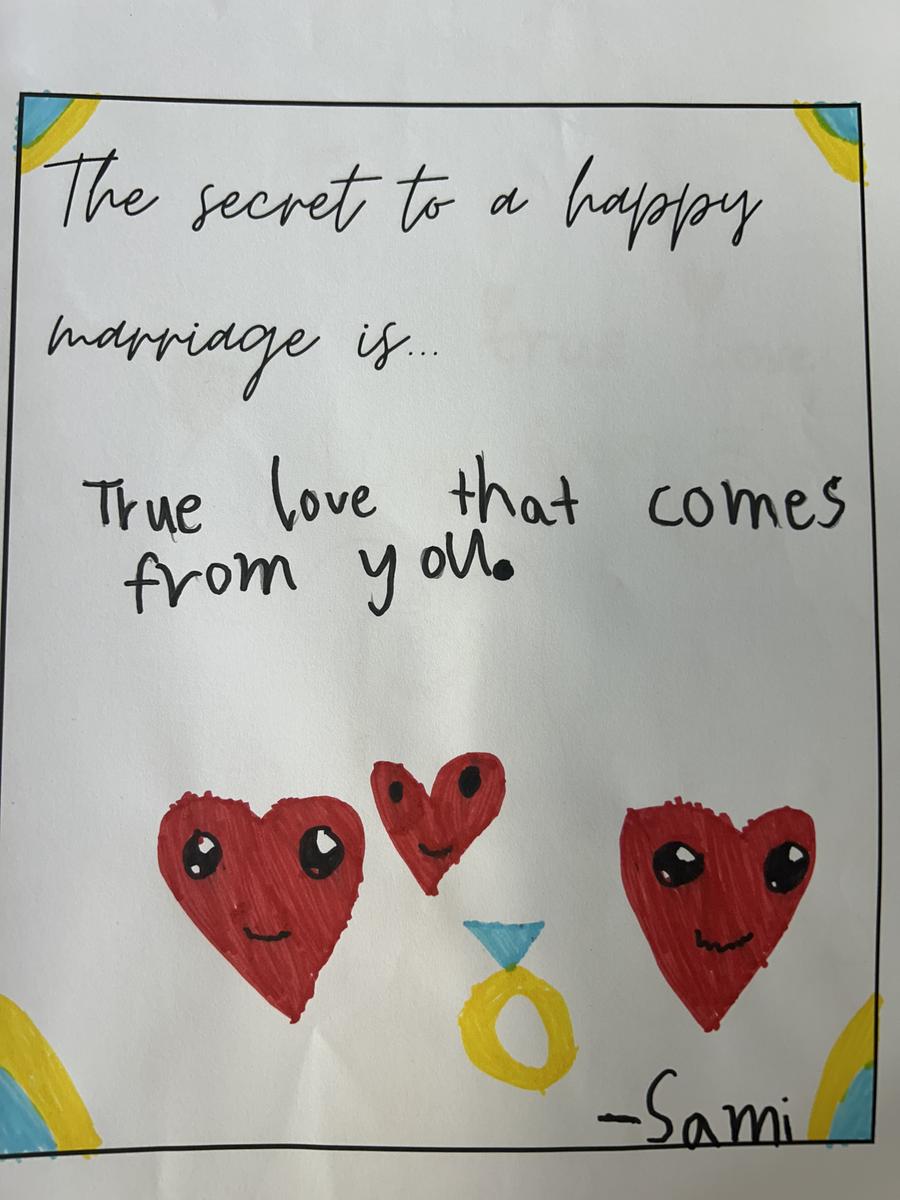 The secret to a happy
marriage is...
True love that comes
from you.
-Sami